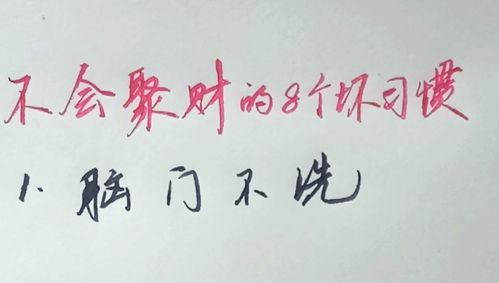 不会聚财的8个坏习惯
1. 脑门不洗